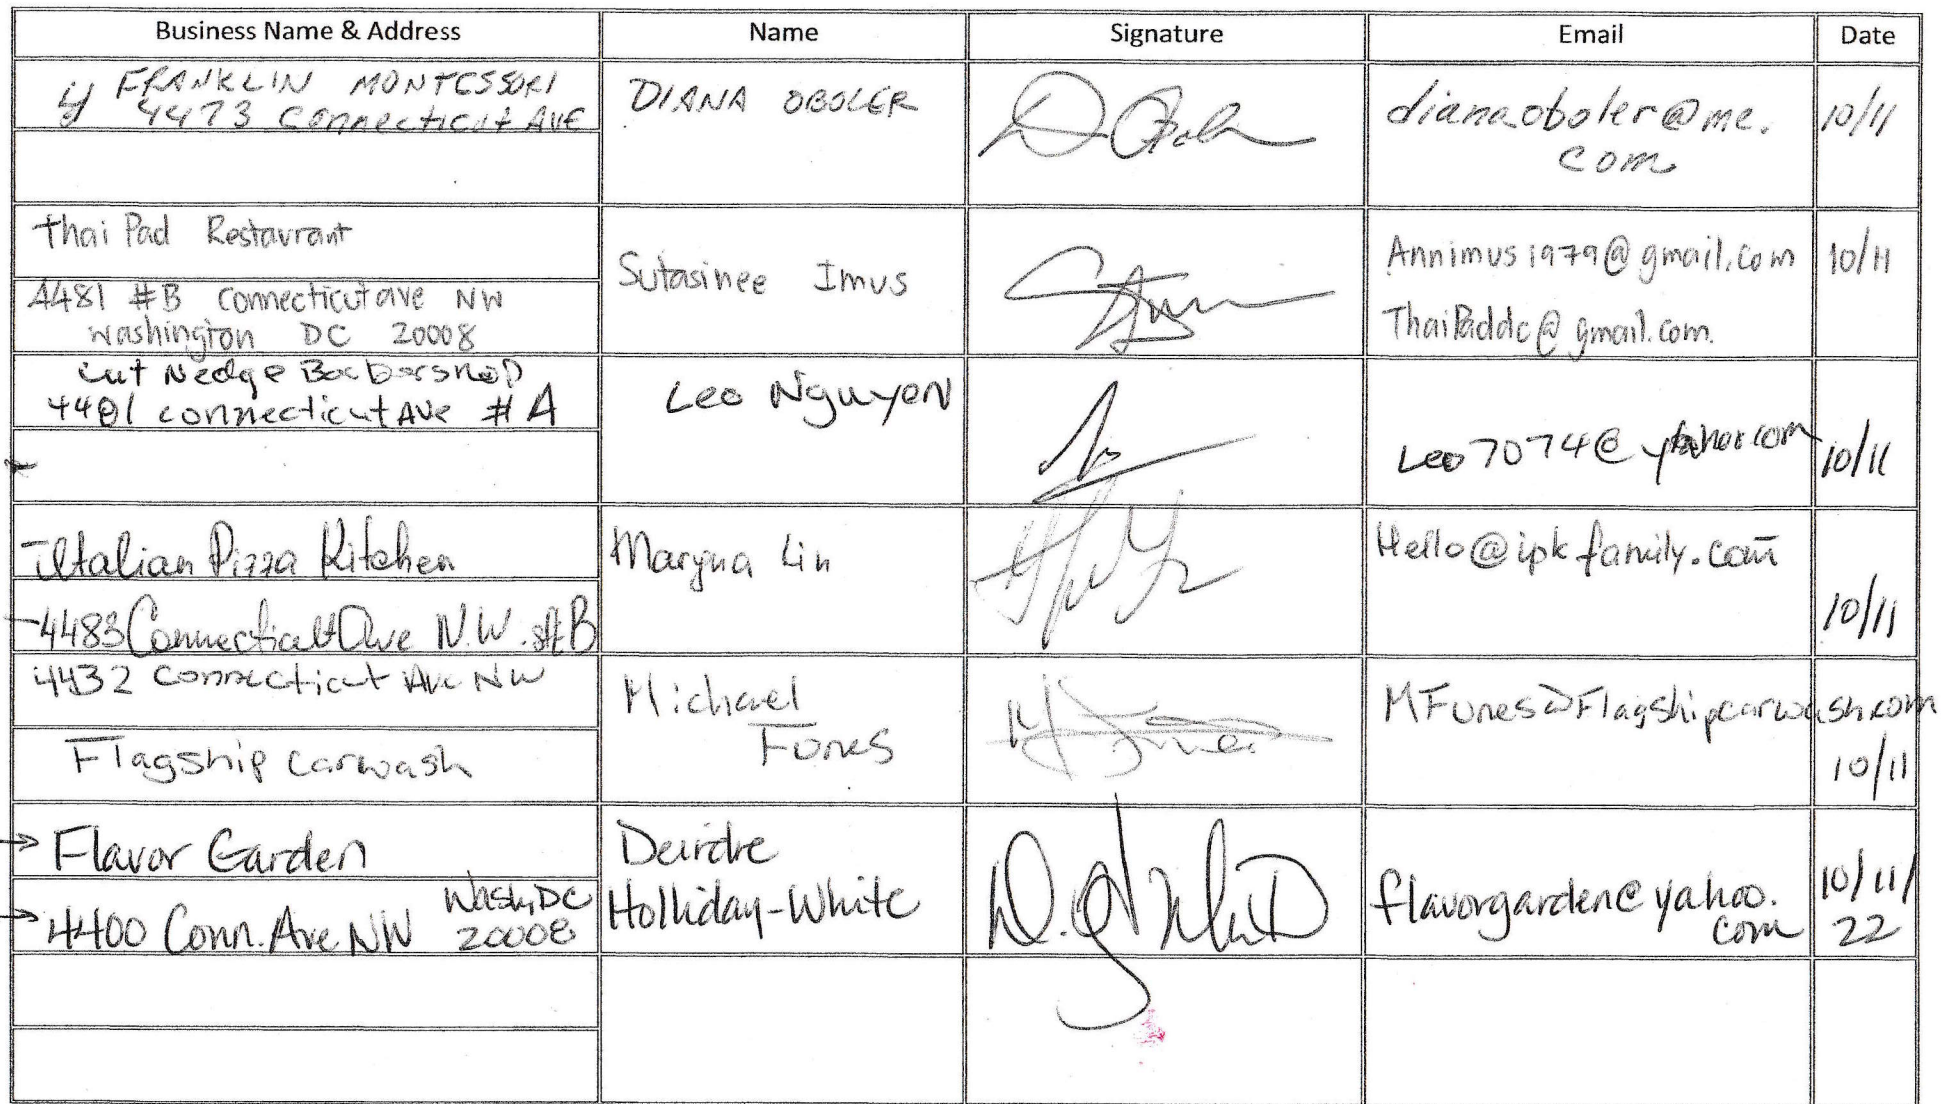 Business Name & Address Name Signature Email Date
FRANKLIN MONTESSORI
4473 Connecticut AVE
DIANA OBOLER
dianaoboler@me.
com
10/11
Thai Pad Restaurant
4481 #B Connecticut ave NW
Washington DC 20008
Sutasinee Imus
Annimus1979@gmail.com
ThaiPaddc@gmail.com.
10/11
cut Nedge Barbershop
4481 connecticut Ave #A
Leo Nguyen
Leo7074@yahoo.com
10/11
Italian Pizza Kitchen
4483 Connecticut Ave N.W. #B
Maryna Lin
Hello@ipkfamily.com
10/11
4432 Connecticut Ave NW
Flagship carwash
Michael
Funes
MFunes@Flagshipcarwash.com
10/11
Flavor Garden
4400 Conn. Ave NW Wash, DC
20008
Deirdre
Holliday-White
flavorgarden@yahoo.
com
10/11/
22